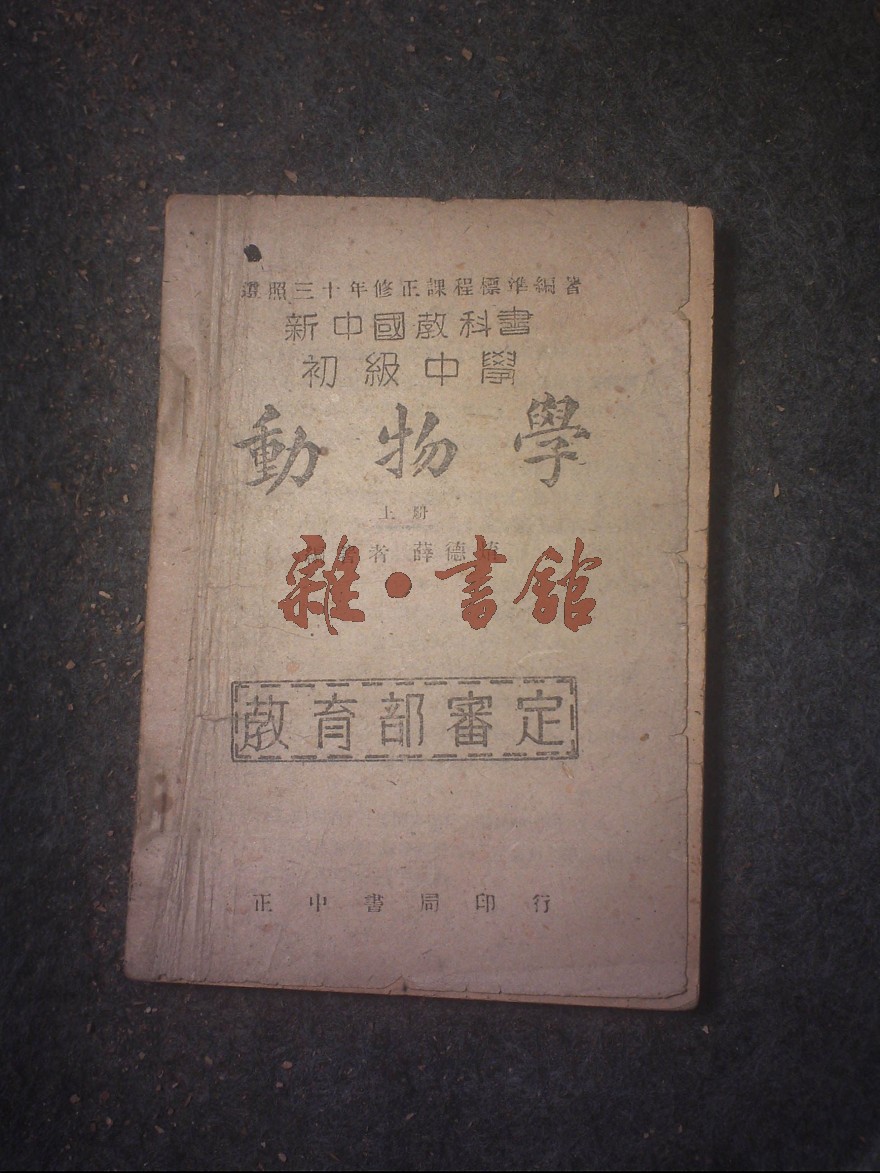 遵照三十年修正課程標準編著
新中國教科書
初級中學
動物學
上冊
者 薛德
雜·書館
教育部審定
正中書局印行